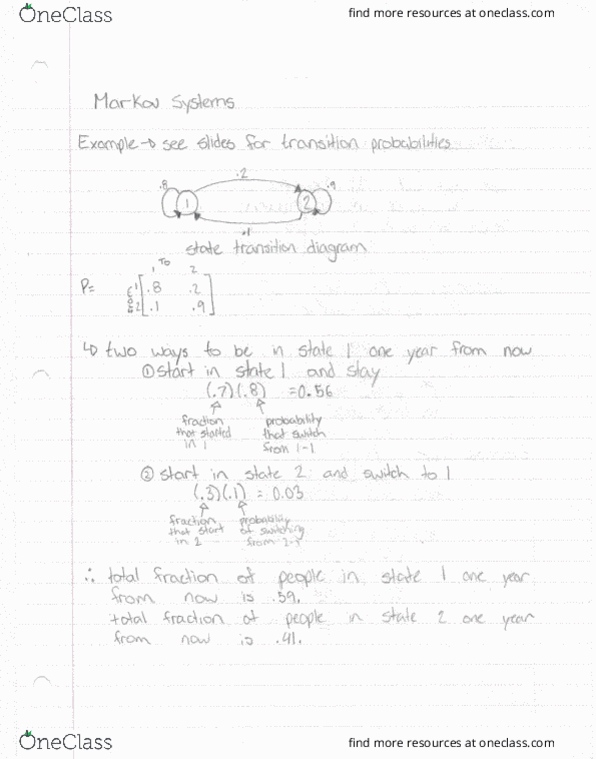 OneClass
find more resources at oneclass.com
Markov Systems
Example → see slides for transition probabilities
.2
.8 1 2 .9
.1
state transition diagram
To
1 2
P= From 1 [ .8 .2
2 .1 .9 ]
↳ two ways to be in state 1 one year from now
① start in state 1 and stay
(.7)(.8) =0.56
fraction probability
that started that switch
in 1 from 1-1
② start in state 2 and switch to 1
(.3)(.1) = 0.03
fraction probability
that start of switching
in 2 from 2-
∴ total fraction of people in state 1 one year
from now is .59.
total fraction of people in state 2 one year
from now is .41.
OneClass
find more resources at oneclass.com